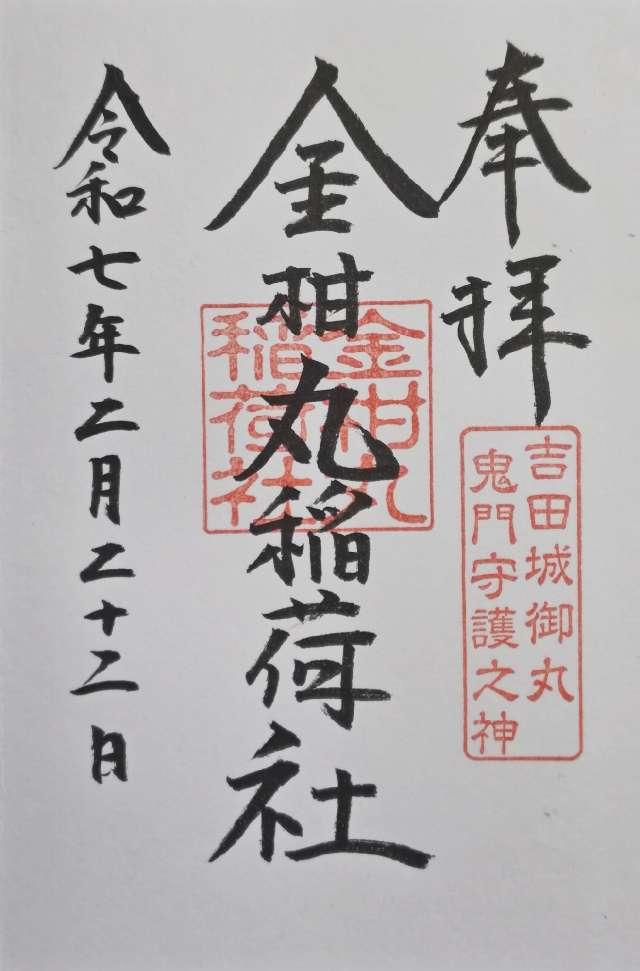 奉拝
吉田城御丸
鬼門守護之神
金柑丸稲荷社
金柑丸
稲荷社
令和七年二月二十二日